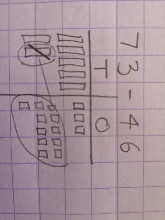 73-46
T O